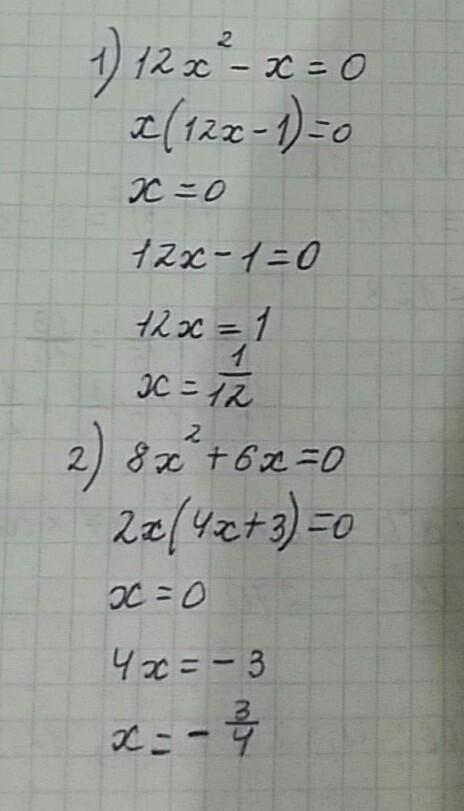 1) 12x² - x = 0
x(12x - 1) = 0
x = 0
12x - 1 = 0
12x = 1
x = 1/12
2) 8x² + 6x = 0
2x(4x + 3) = 0
x = 0
4x = - 3
x = - 3/4